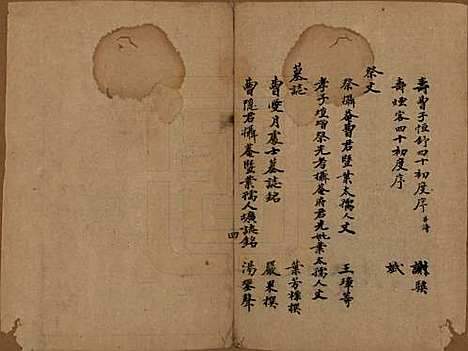 壽曾子恒舒四十初度序 謝騤
壽煙客四十初度序 斌
祭文
祭攝菴曹君暨葉太孺人文 王瑋等
孝子煌增祭先考攝菴府君先妣葉太孺人文
墓誌
曹雙月處士墓誌銘 葉芳標撰
曹隱君攝菴暨葉孺人壙誌銘 嚴杲撰
湯鋆聲
四